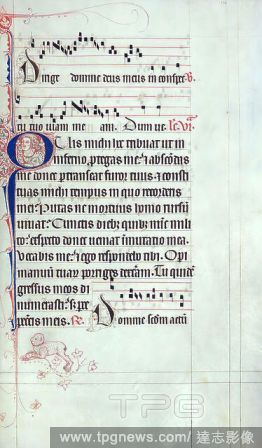 Dirige domine deus meus in conspe R.
tu tuo viam me am. Dum ve. Lc. vi
Quis michi hc tribuat ut in
inferno ptegas me: 7 abscodas
me donec ptranseat furor tuus: 7 consti
tuas michi tempus in quo recorderis
mei: Putas ne mortuus homo rursu
vivat: Cunctis dieb; quib; nuc mili
to: expecto donec veniat imutatio mea.
Vocabis me: 7 ego respondebo tibi. Opi
manuu tuaru porriges dextam. Tu quide
gressus meos di
numerasti: s; pc
peccatis meis. R.
Domine scdm actu
TPG
www.tpgnews.com/ 達志影像